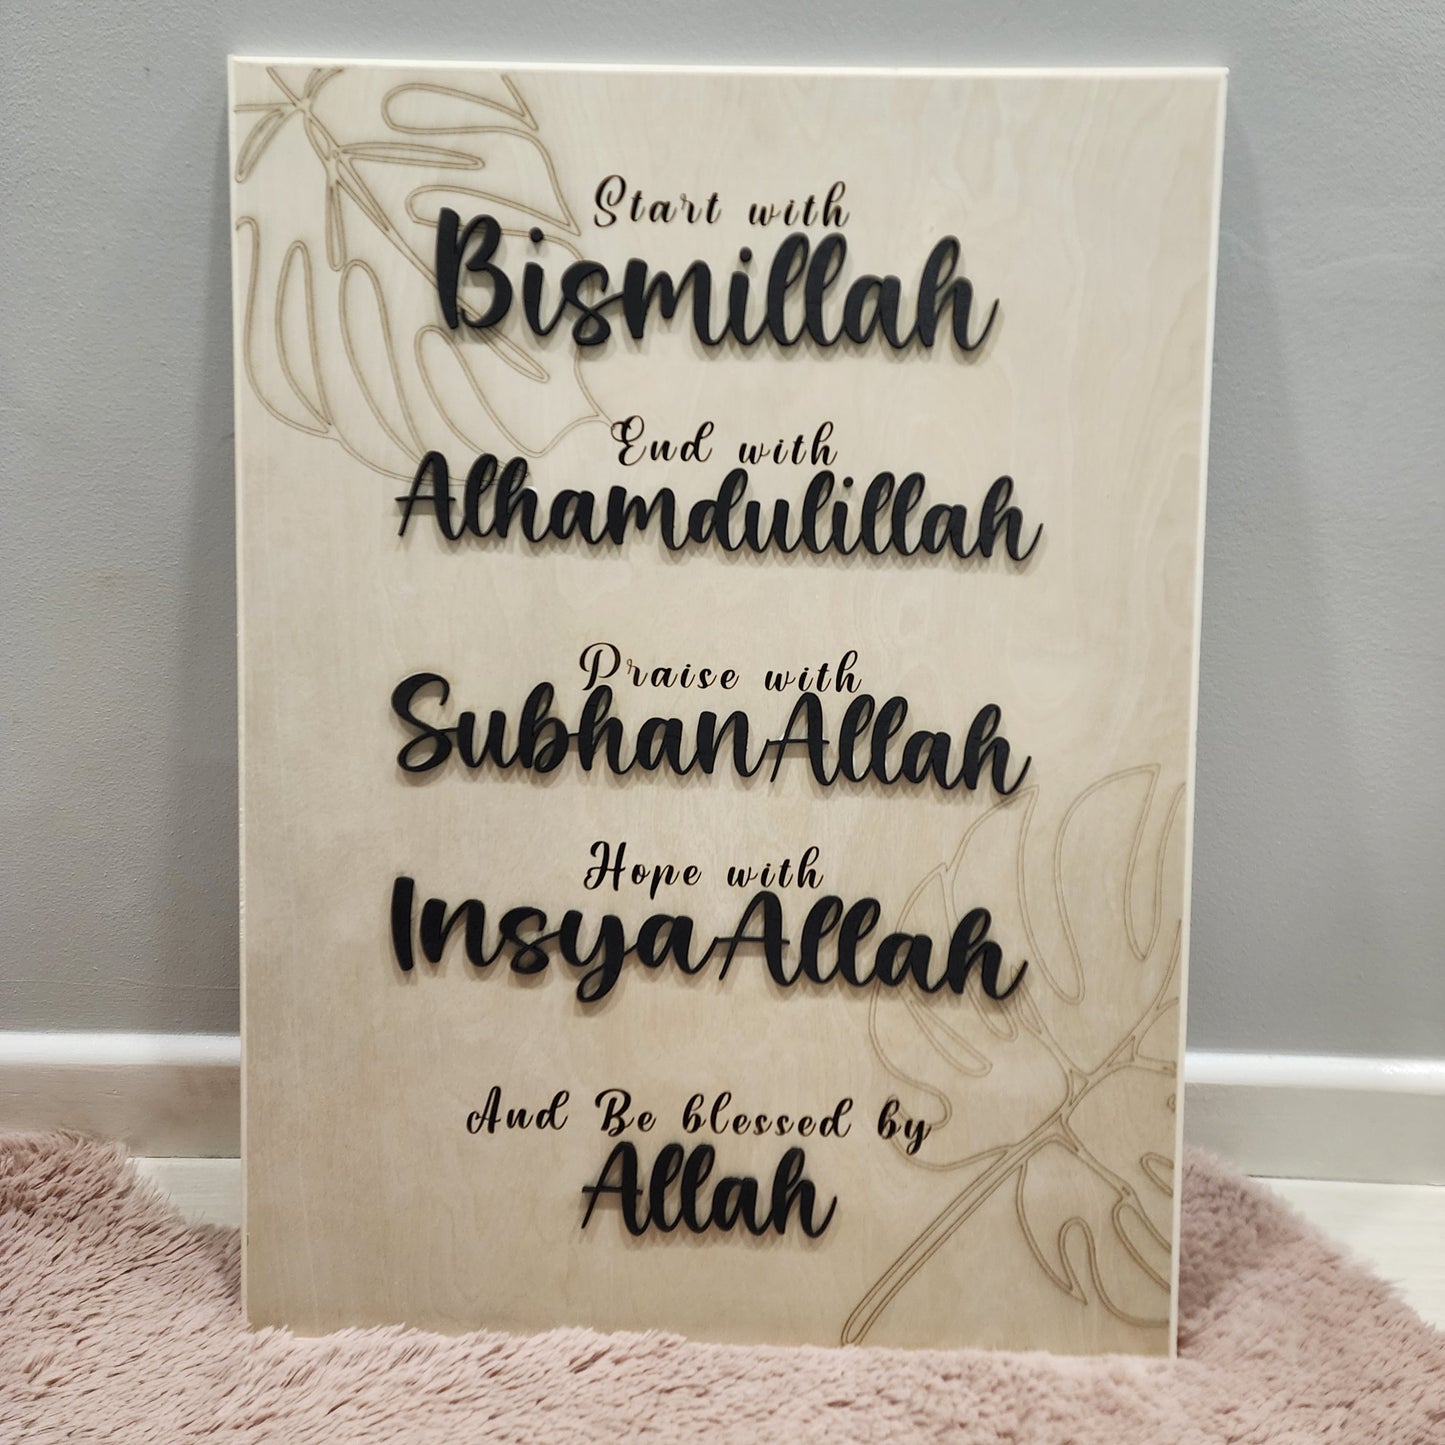 Start with
Bismillah
End with
Alhamdulillah
Praise with
SubhanAllah
Hope with
InsyaAllah
And Be blessed by
Allah